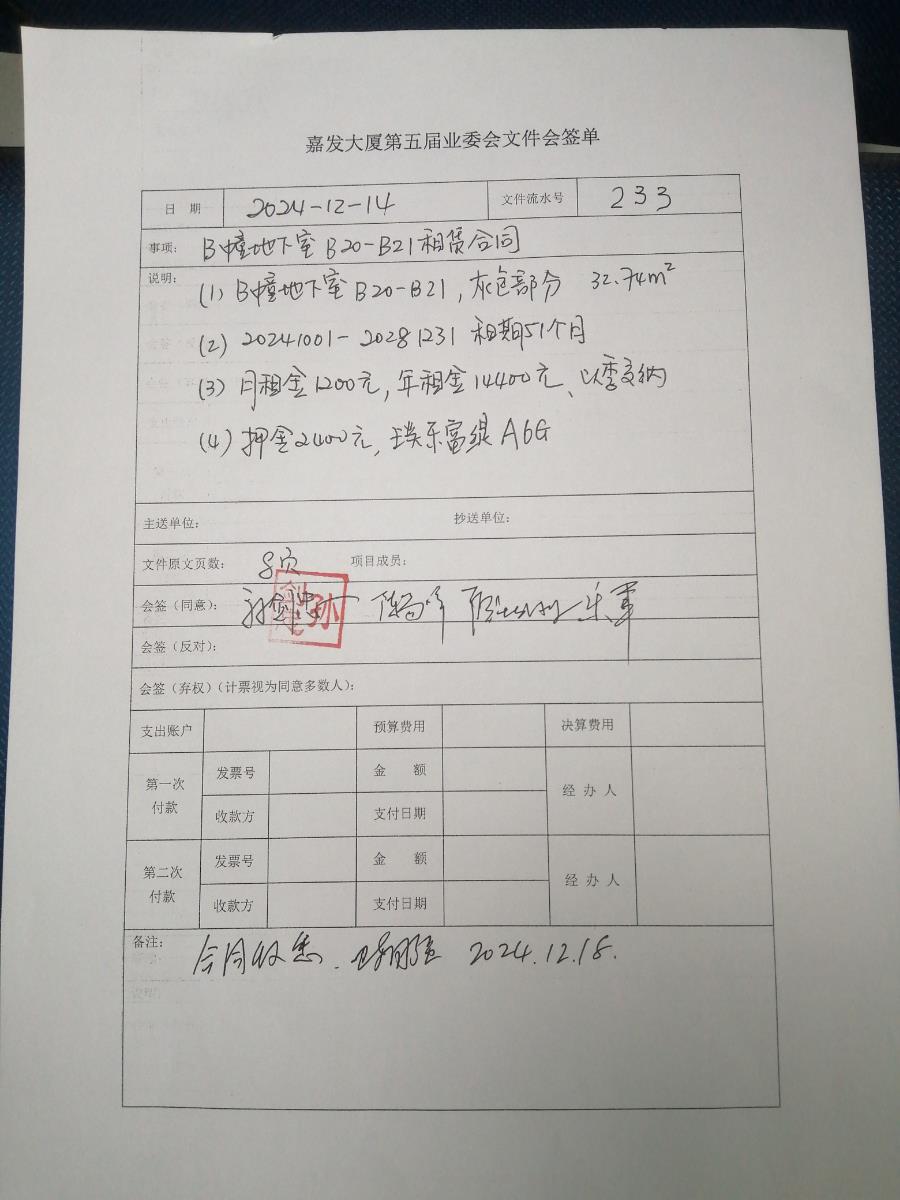 嘉发大厦第五届业委会文件会签单
日 期 2024-12-14 文件流水号 233
事项: B幢地下室B20-B21租赁合同
说明: (1) B幢地下室B20-B21, 灰色部分 32.74m²
(2) 20241001-20281231 租期51个月
(3) 月租金1200元, 年租金14400元、以季交纳
(4) 押金2400元, A6G
主送单位: 抄送单位:
文件原文页数: 8页 项目成员:
会签(同意): 孙
会签(反对):
会签(弃权)(计票视为同意多数人):
支出账户 预算费用 决算费用
第一次付款 发票号 金 额 经 办 人
收款方 支付日期
第二次付款 发票号 金 额 经 办 人
收款方 支付日期
备注: 合同收悉. 2024.12.18.